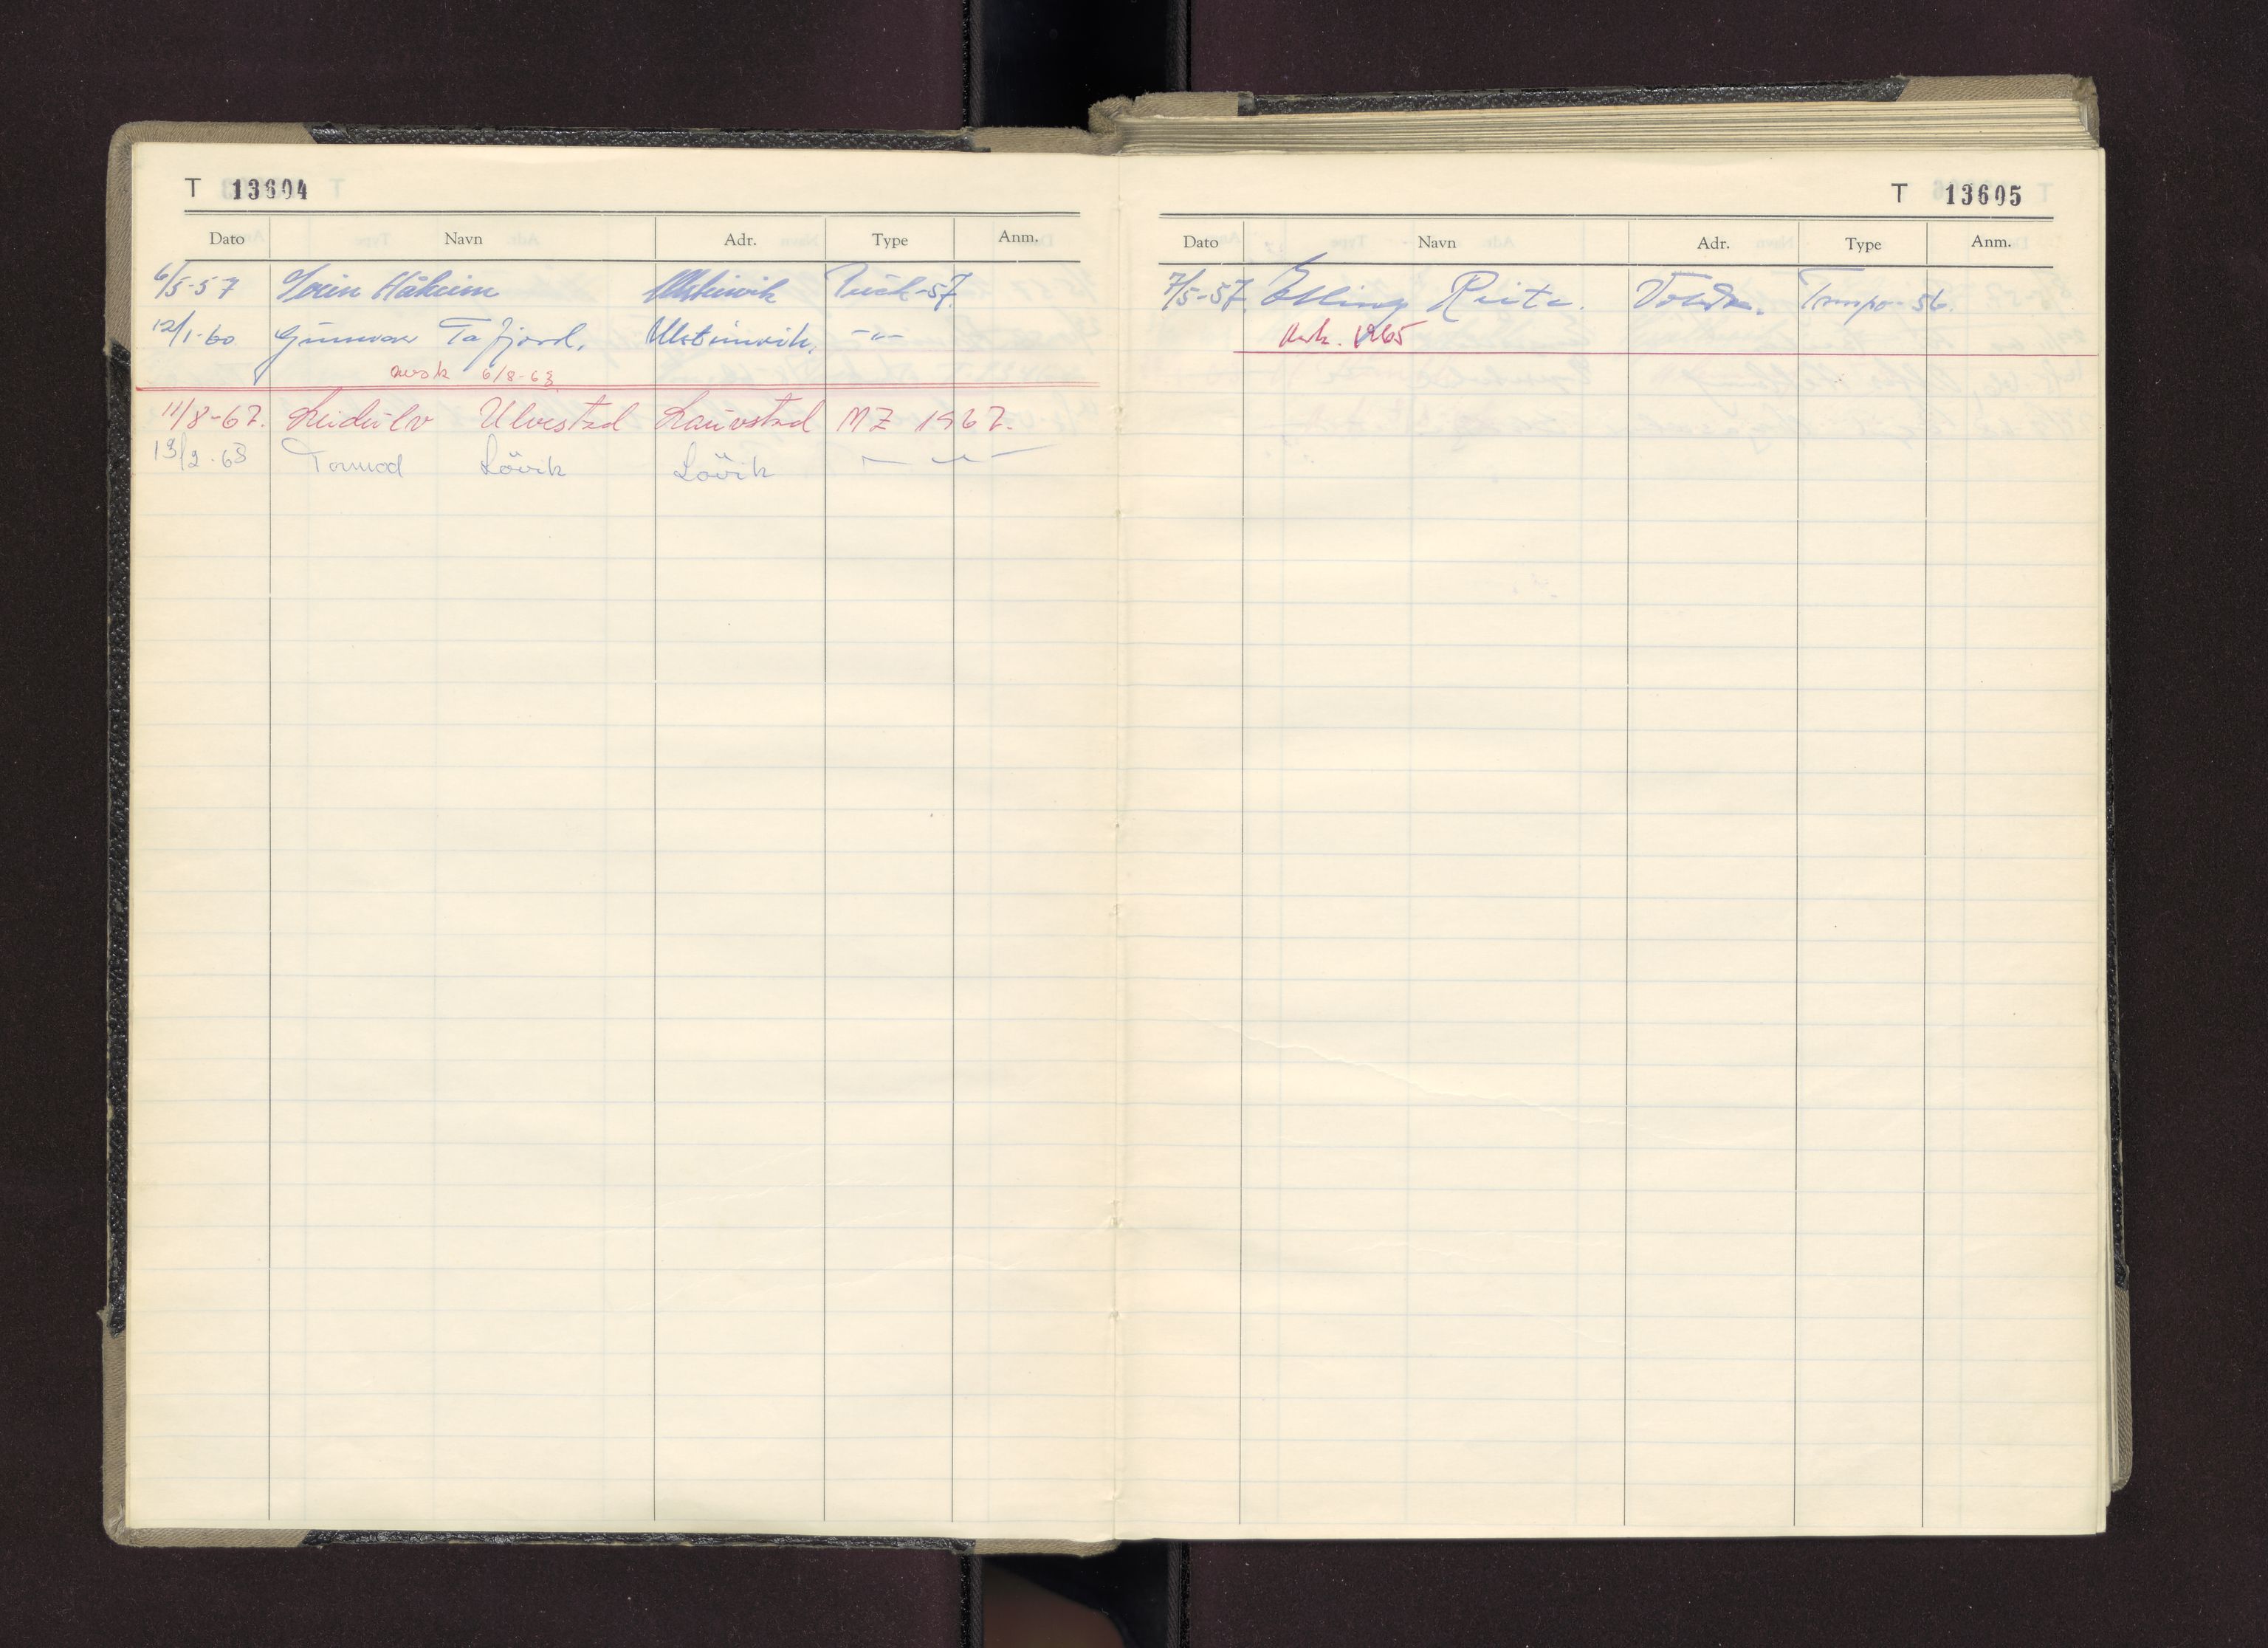 T 13604
Dato Navn Adr. Type Anm.
6/5-57 Håheim Ulsteinvik Puch-57.
12/1-60 Gunnvor Tafjord. Ulsteinvik. -"-
avsk 6/8-63
11/8-67. Leidulv Ulvestad Lauvstad MZ 1967.
19/2-68 Tormod Lövik Lövik — " —
T 13605
Dato Navn Adr. Type Anm.
7/5-57. Elling Reite. Volda. Tempo-56.
Avsk. 1965